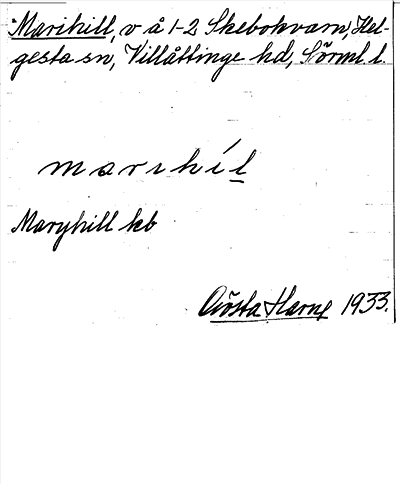 Marihill, v å 1-2 Skebokvarn, Hel-
gesta sn, Villåttinge hd, Sörml. l.
marihíl
Maryhill kb
Gösta Harne 1933.